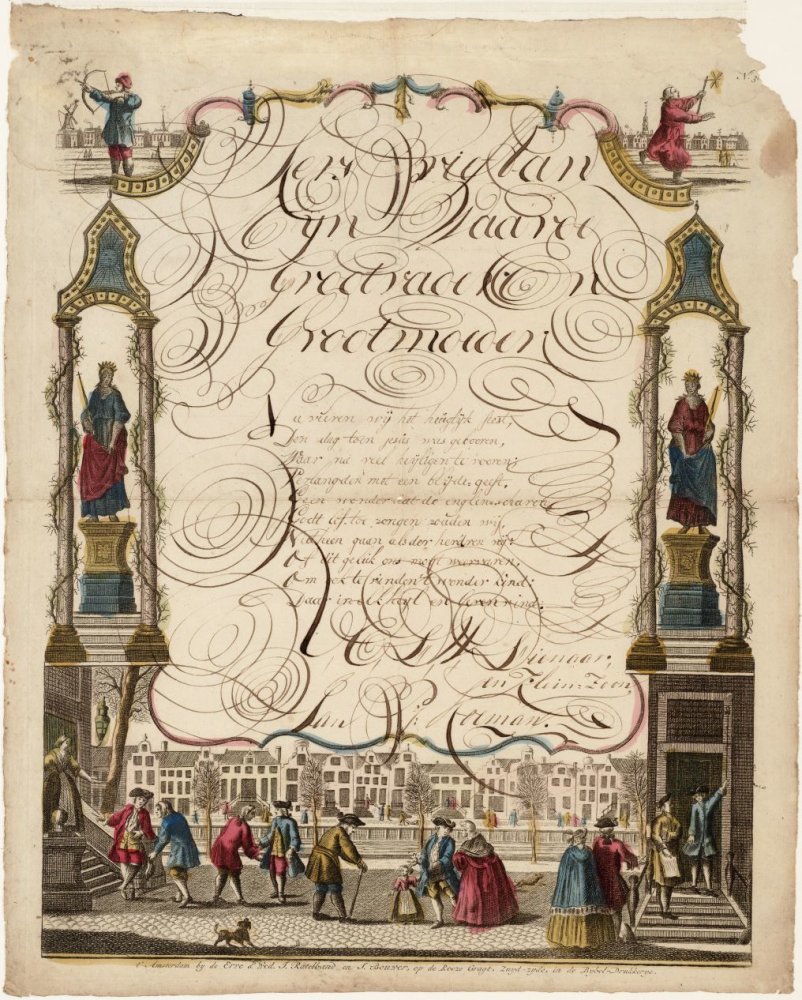 Kers Vrigt an
Myn Waarde
Grootvader en
Grootmoeder
Nu vieren wij het heuglyk feest,
Den dag toen jesus was gebooren,
Waar na veel heyligen te vooren,
Verlangden met een blyde geest,
Geen wonder dat de englen schaaren
Godt lof toe zongen zouden wy,
Niet zien gaan als der herdren ry:
Of dit geluk ons mogt
Om ook te vinden 't wonder kind;
Daar in de heyl en leven vind.
U E D W Dienaar,
en Klein-Zoon
Jan Koeman.
t' Amsterdam by de Erve d'Wed. J. Ratelband, en J. Bouwer, op de Rooze Gragt, zuyd-zyde, in de Bybel-Drukkerye.